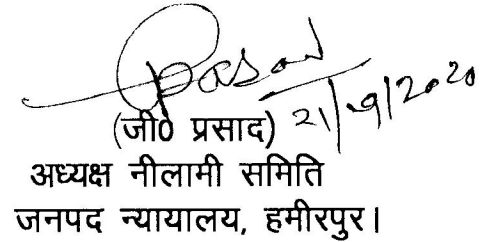 Prasad
21/9/2020
(जी0 प्रसाद)
अध्यक्ष नीलामी समिति
जनपद न्यायालय, हमीरपुर।